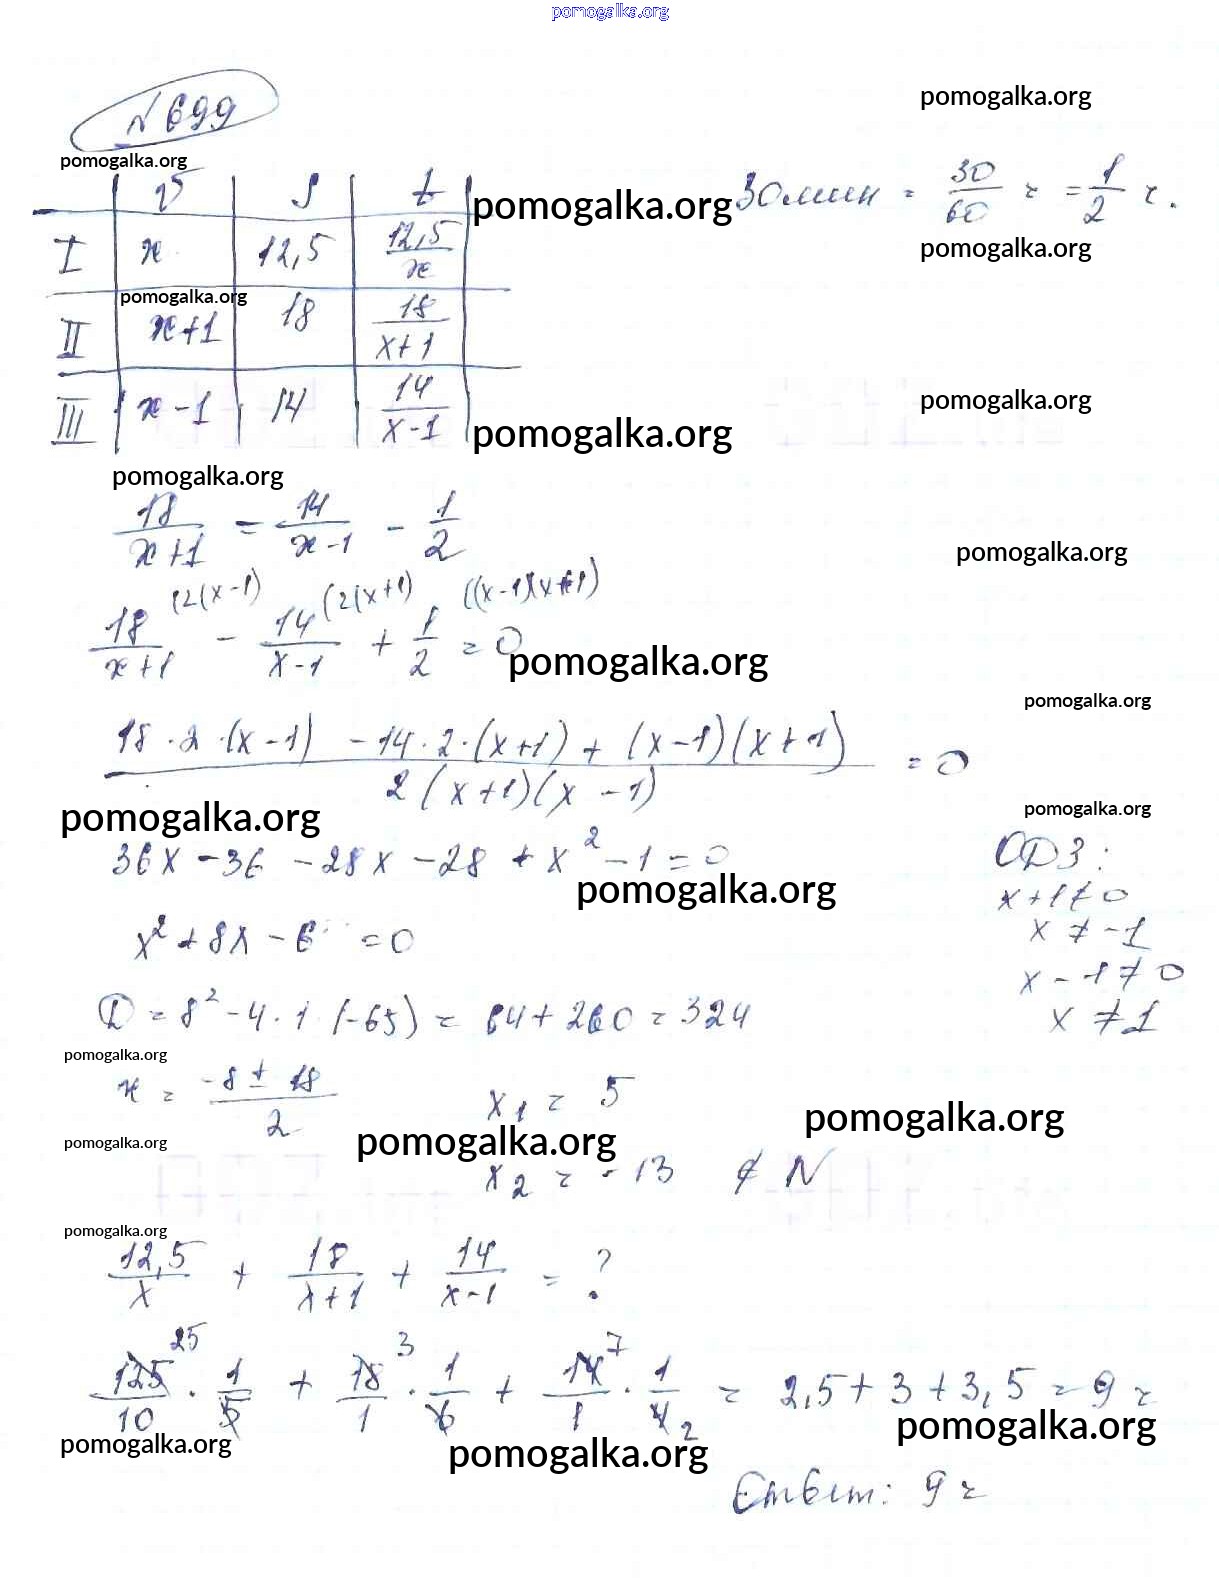 pomogalka.org
№699
pomogalka.org
pomogalka.org
V S t
pomogalka.org
30 мин = 30/60 ч = 1/2 ч.
I x 12,5 12,5/x
pomogalka.org
pomogalka.org
II x+1 18 18/x+1
III x-1 14 14/x-1
pomogalka.org
pomogalka.org
pomogalka.org
18/x+1 = 14/x-1 - 1/2
pomogalka.org
18/x+1 (2(x-1) - 14/x-1 (2(x+1) + 1/2 ((x-1)(x+1) = 0
pomogalka.org
pomogalka.org
18·2·(x-1) -14·2·(x+1) + (x-1)(x+1) / 2(x+1)(x-1) = 0
pomogalka.org
pomogalka.org
36x - 36 - 28x - 28 + x² - 1 = 0
ОДЗ:
pomogalka.org
x+1≠0
x ≠ -1
x² + 8x - 6 = 0
x - 1 ≠ 0
x ≠ 1
D = 8² - 4·1·(-65) = 64 + 260 = 324
pomogalka.org
x = -8 ± 18 / 2
x₁ = 5
pomogalka.org
pomogalka.org
pomogalka.org
x₂ = -13 ∉ N
pomogalka.org
12,5/x + 18/x+1 + 14/x-1 = ?
125/10 25 · 1/5 + 18/1 3 · 1/6 + 14/1 7 · 1/4 2 = 2,5 + 3 + 3,5 = 9 ч
pomogalka.org
pomogalka.org
pomogalka.org
Ответ: 9 ч